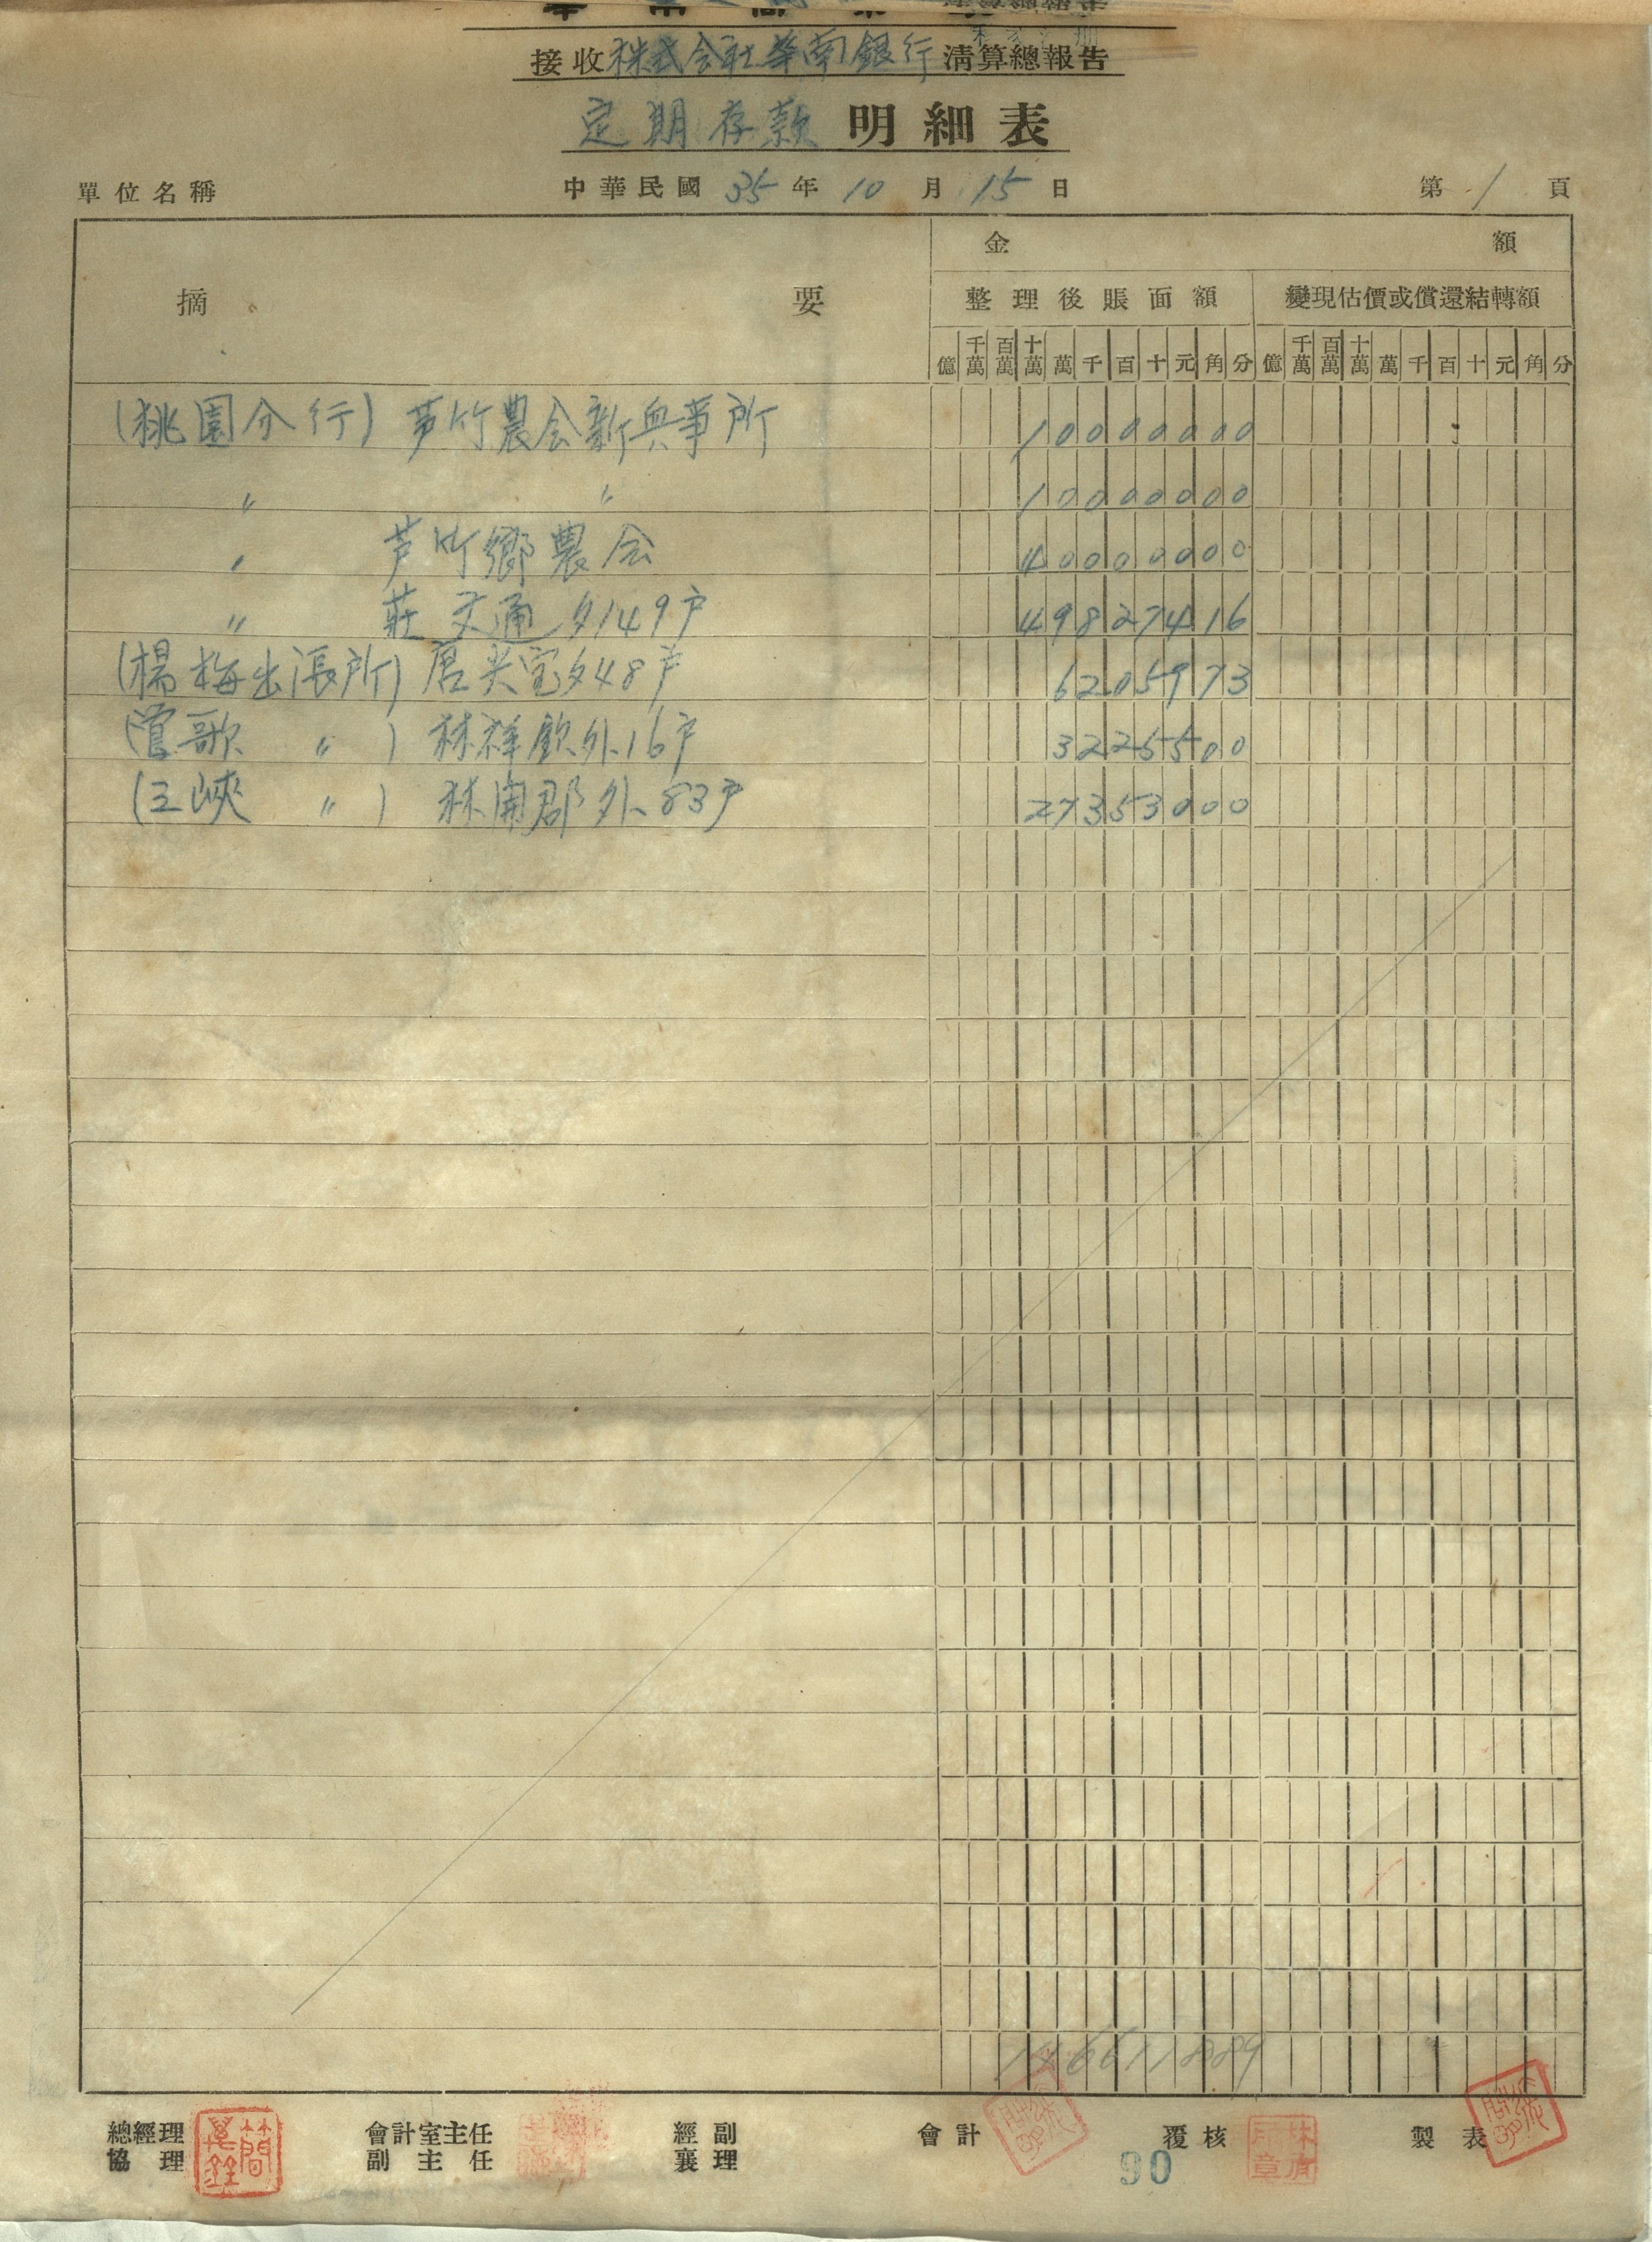 接收株式会社華南銀行清算總報告
定期存款明細表
單位名稱 中華民國35年10月15日 第1頁
摘要 金額
整理後賬面額 變現估價或償還結轉額
億 千萬 百萬 十萬 萬 千 百 十 元 角 分 億 千萬 百萬 十萬 萬 千 百 十 元 角 分
(桃園分行) 芦竹農会新興事所 10000000
〃 〃 10000000
〃 芦竹鄉農会 40000000
〃 莊交通外149户 49827416
(楊梅出張所) 外48户 6205973
(鶯歌 〃 ) 林祥欽外16户 3225500
(三峽 〃 ) 林開郡外83户 27353000
146611889
總經理 會計室主任 經副 會計 覆核 製表
協理 副主任 襄理
90